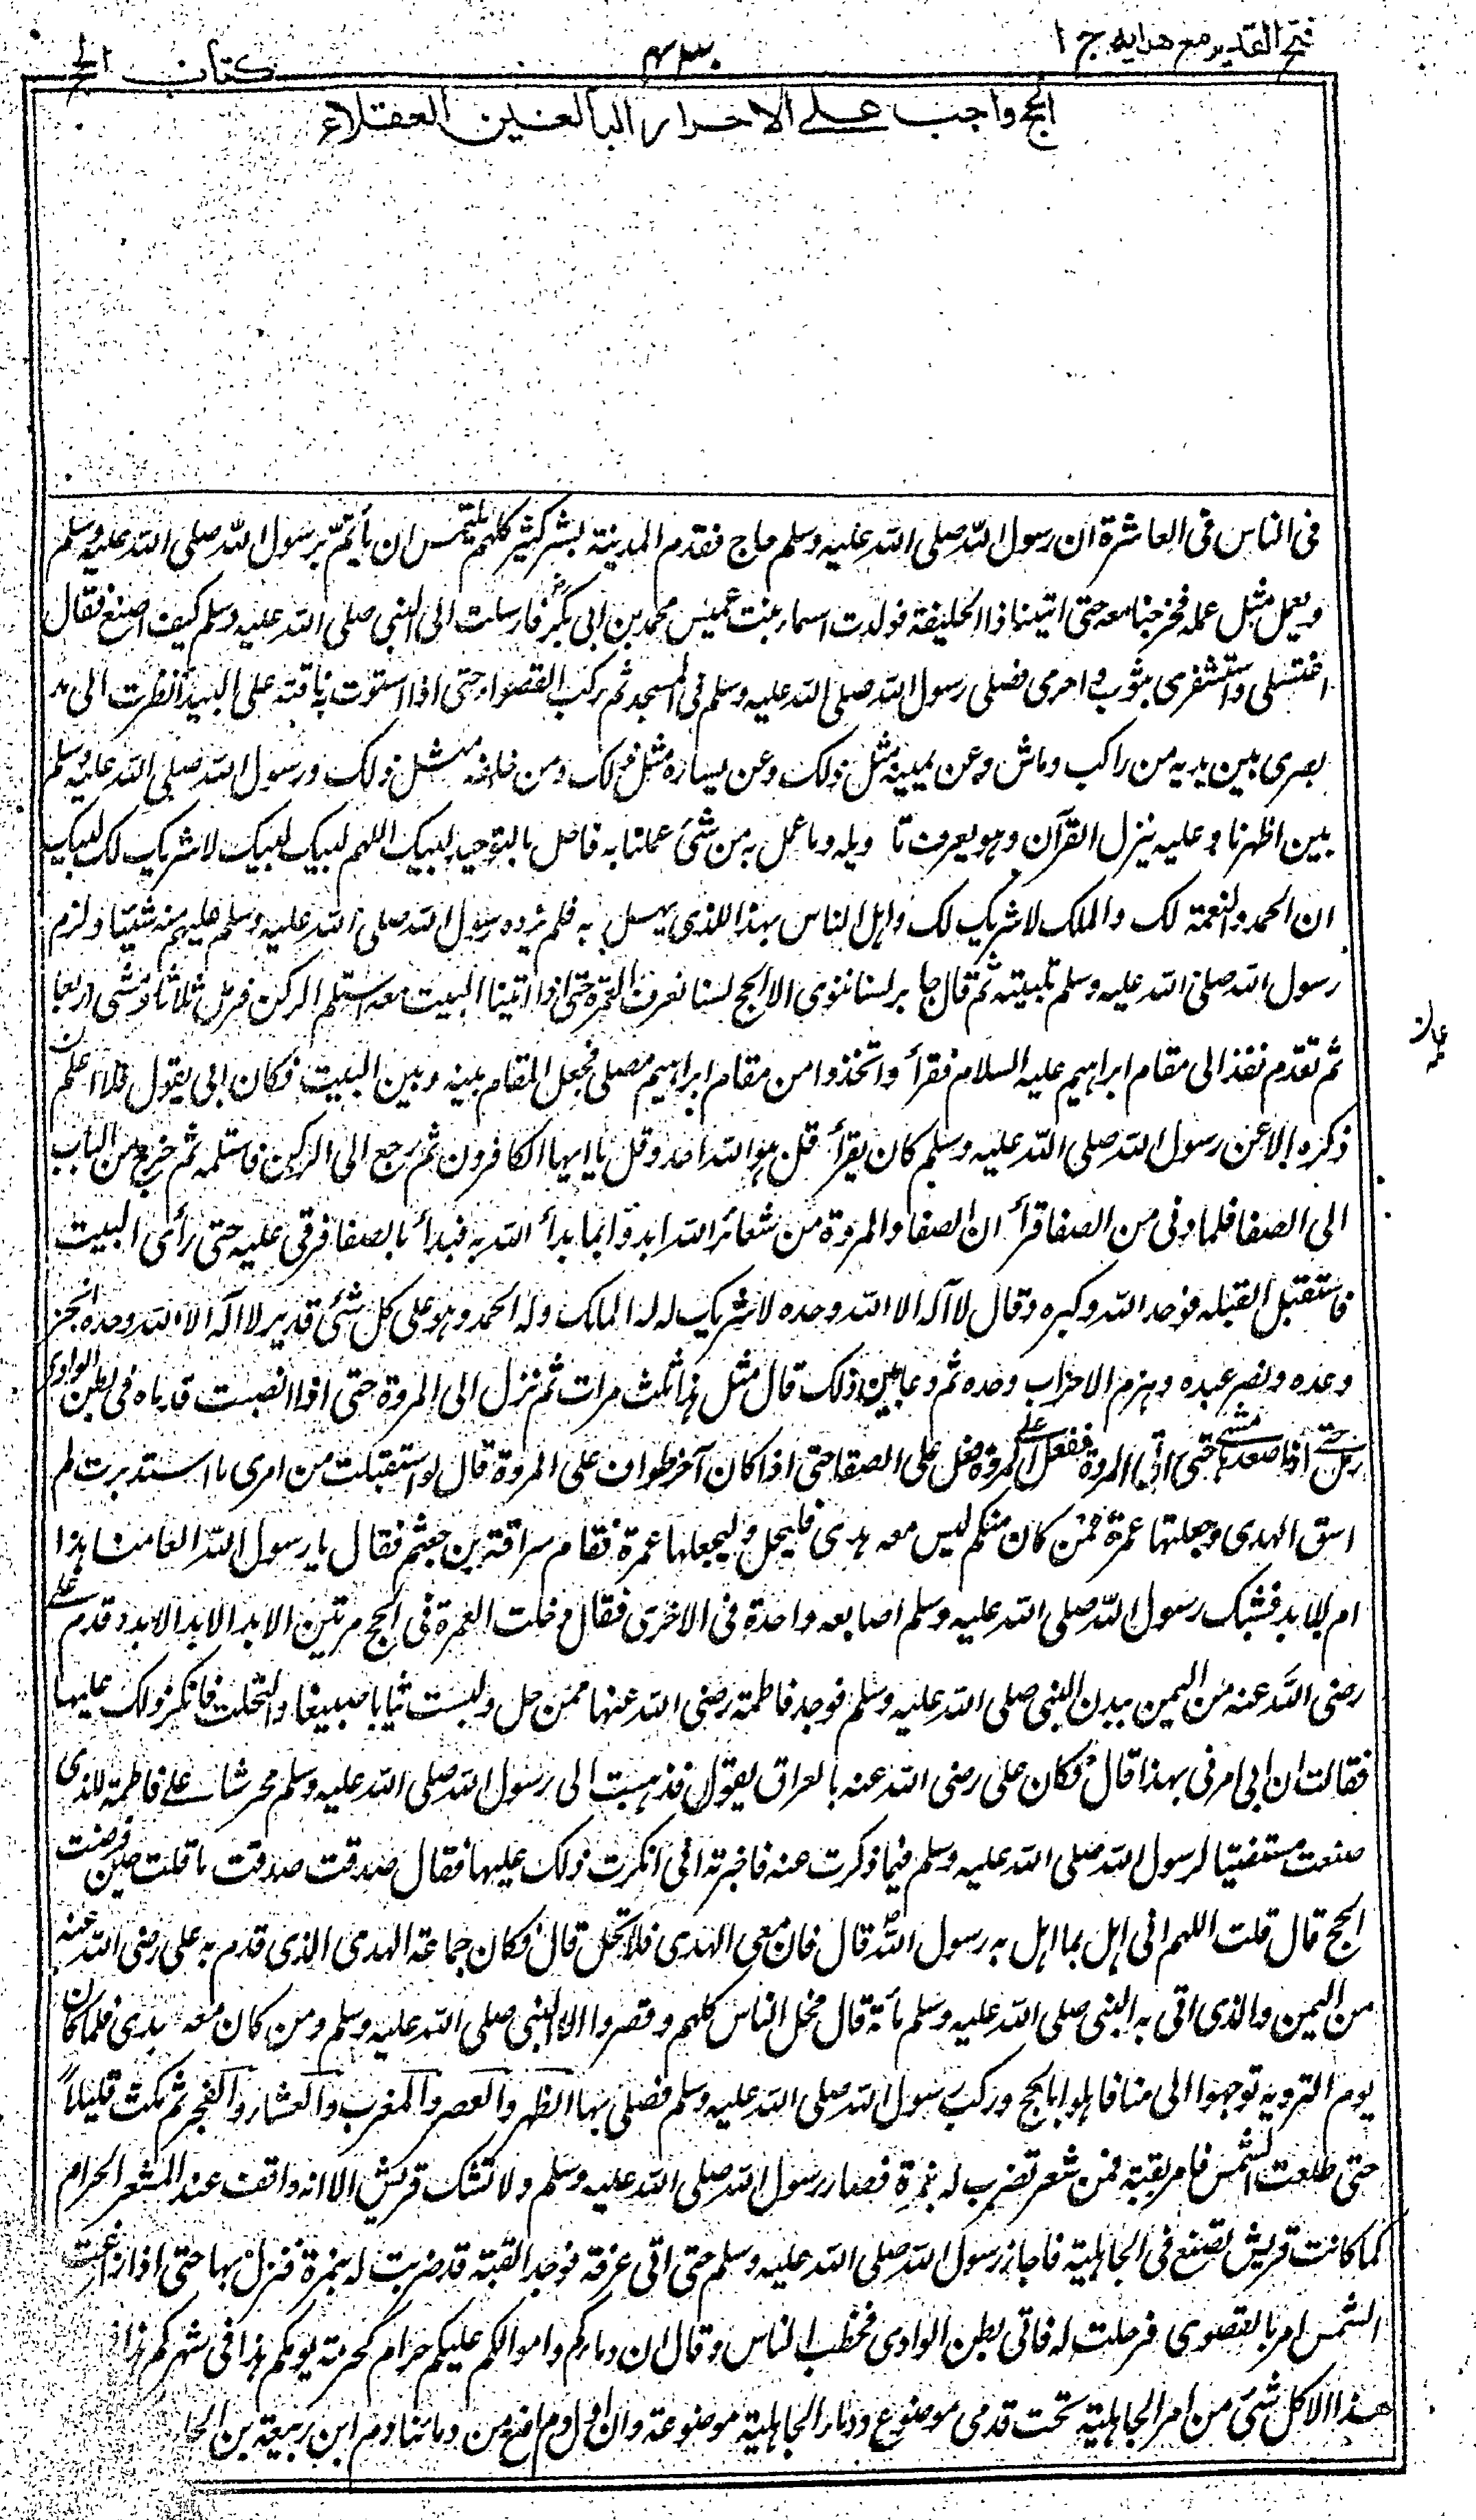 فتح القدير مع هدايه ج ١
كتاب الحج
الحج واجب على الاحرار البالغين العقلاء
فى الناس فى العاشرة ان رسول الله صلى الله عليه وسلم حاج فقدم المدينة بشر كثير كلهم يلتمس ان يأتم برسول الله صلى الله عليه وسلم
ويعمل مثل عمله فخرجنا معه حتى اتينا ذا الحليفة فولدت اسماء بنت عميس محمد بن ابى بكر فارسلت الى النبى صلى الله عليه وسلم كيف اصنع فقال
اغتسلى واستثفرى بثوب واحرمى فصلى رسول الله صلى الله عليه وسلم فى المسجد ثم ركب القصواء حتى اذا استوت به ناقته على البيداء نظرت الى مد
بصرى بين يديه من راكب وماش وعن يمينه مثل ذلك وعن يساره مثل ذلك ومن خلفه مثل ذلك ورسول الله صلى الله عليه وسلم
بين اظهرنا وعليه ينزل القرآن وهو يعرف تا ويله وما عمل به من شئ عملنا به فاهل بالتوحيد لبيك اللهم لبيك لبيك لا شريك لك لبيك
ان الحمد والنعمة لك والملك لا شريك لك واهل الناس بهذا الذى يهل به فلم يرده رسول الله صلى الله عليه وسلم عليهم منه شيئا ولزم
رسول الله صلى الله عليه وسلم تلبيته ثم قال جابر لسنا ننوى الا الحج لسنا نعرف العمرة حتى اذا اتينا البيت معه استلم الركن فرمل ثلاثا ومشى اربعا
ثم تقدم نفذ الى مقام ابراهيم عليه السلام فقرأ واتخذوا من مقام ابراهيم مصلى فجعل المقام بينه وبين البيت فكان ابى يقول فلا اعلم
ذكره الا عن رسول الله صلى الله عليه وسلم كان يقرأ قل هو الله احد وقل يا ايها الكافرون ثم رجع الى الركن فاستلمه ثم خرج من الباب
الى الصفا فلما دنى من الصفا قرأ ان الصفا والمروة من شعائر الله ابدؤا بما بدأ الله به فبدأ بالصفا فرقى عليه حتى رأى البيت
فاستقبل القبله فوحد الله وكبره وقال لا اله الا الله وحده لا شريك له له الملك وله الحمد وهو على كل شئ قدير لا اله الا الله وحده انجز
وعده ونصر عبده وهزم الاحزاب وحده ثم دعا بين ذلك قال مثل هذا ثلث مرات ثم نزل الى المروة حتى اذا انصبت قدماه فى بطن الوادى
رمل حتى اذا صعدنا مشى حتى اتى المروة ففعل على المروة كما فعل على الصفا حتى اذا كان آخر طواف على المروة قال لو استقبلت من امرى ما استدبرت لم
اسق الهدى وجعلتها عمرة فمن كان منكم ليس معه هدى فليحل وليجعلها عمرة فقام سراقة بن جعثم فقال يا رسول الله العامنا هذا
ام للابد فشبك رسول الله صلى الله عليه وسلم اصابعه واحدة فى الاخرى فقال دخلت العمرة فى الحج مرتين الا بد الابد الابد وقدم على
رضى الله عنه من اليمن ببدن النبى صلى الله عليه وسلم فوجد فاطمة رضى الله عنها ممن حل ولبست ثيابا صبيغا واكتحلت فانكر ذلك عليها
فقالت ان ابى امرنى بهذا قال فكان على رضى الله عنه بالعراق يقول فذهبت الى رسول الله صلى الله عليه وسلم محرشا على فاطمة للذى
صنعت مستفتيا لرسول الله صلى الله عليه وسلم فيما ذكرت عنه فاخبرته انى انكرت ذلك عليها فقال صدقت صدقت ما قلت حين فرضت
الحج قال قلت اللهم انى اهل بما اهل به رسول الله قال فان معى الهدى فلا تحل قال فكان جماعة الهدى الذى قدم به على رضى الله عنه
من اليمن والذى اتى به النبى صلى الله عليه وسلم مائة قال فحل الناس كلهم وقصروا الا النبى صلى الله عليه وسلم ومن كان معه هدى فلما كان
يوم الترويه توجهوا الى منا فاهلوا بالحج وركب رسول الله صلى الله عليه وسلم فصلى بها الظهر والعصر والمغرب والعشاء والفجر ثم مكث قليلا
حتى طلعت الشمس فامر بقبة من شعر تضرب له بنمرة فصار رسول الله صلى الله عليه وسلم ولا تشك قريش الا انه واقف عند المشعر الحرام
كما كانت قريش تصنع فى الجاهلية فاجاز رسول الله صلى الله عليه وسلم حتى اتى عرفة فوجد القبة قد ضربت له بنمرة فنزل بها حتى اذا زاغت
الشمس امر بالقصوى فرحلت له فاتى بطن الوادى فخطب الناس وقال ان دماءكم واموالكم عليكم حرام كحرمة يومكم هذا فى شهركم هذا
هذا الا كل شئ من امر الجاهلية تحت قدمى موضوع ودماء الجاهلية موضوعة وان اول دم اضع من دمائنا دم ابن ربيعة بن الحا